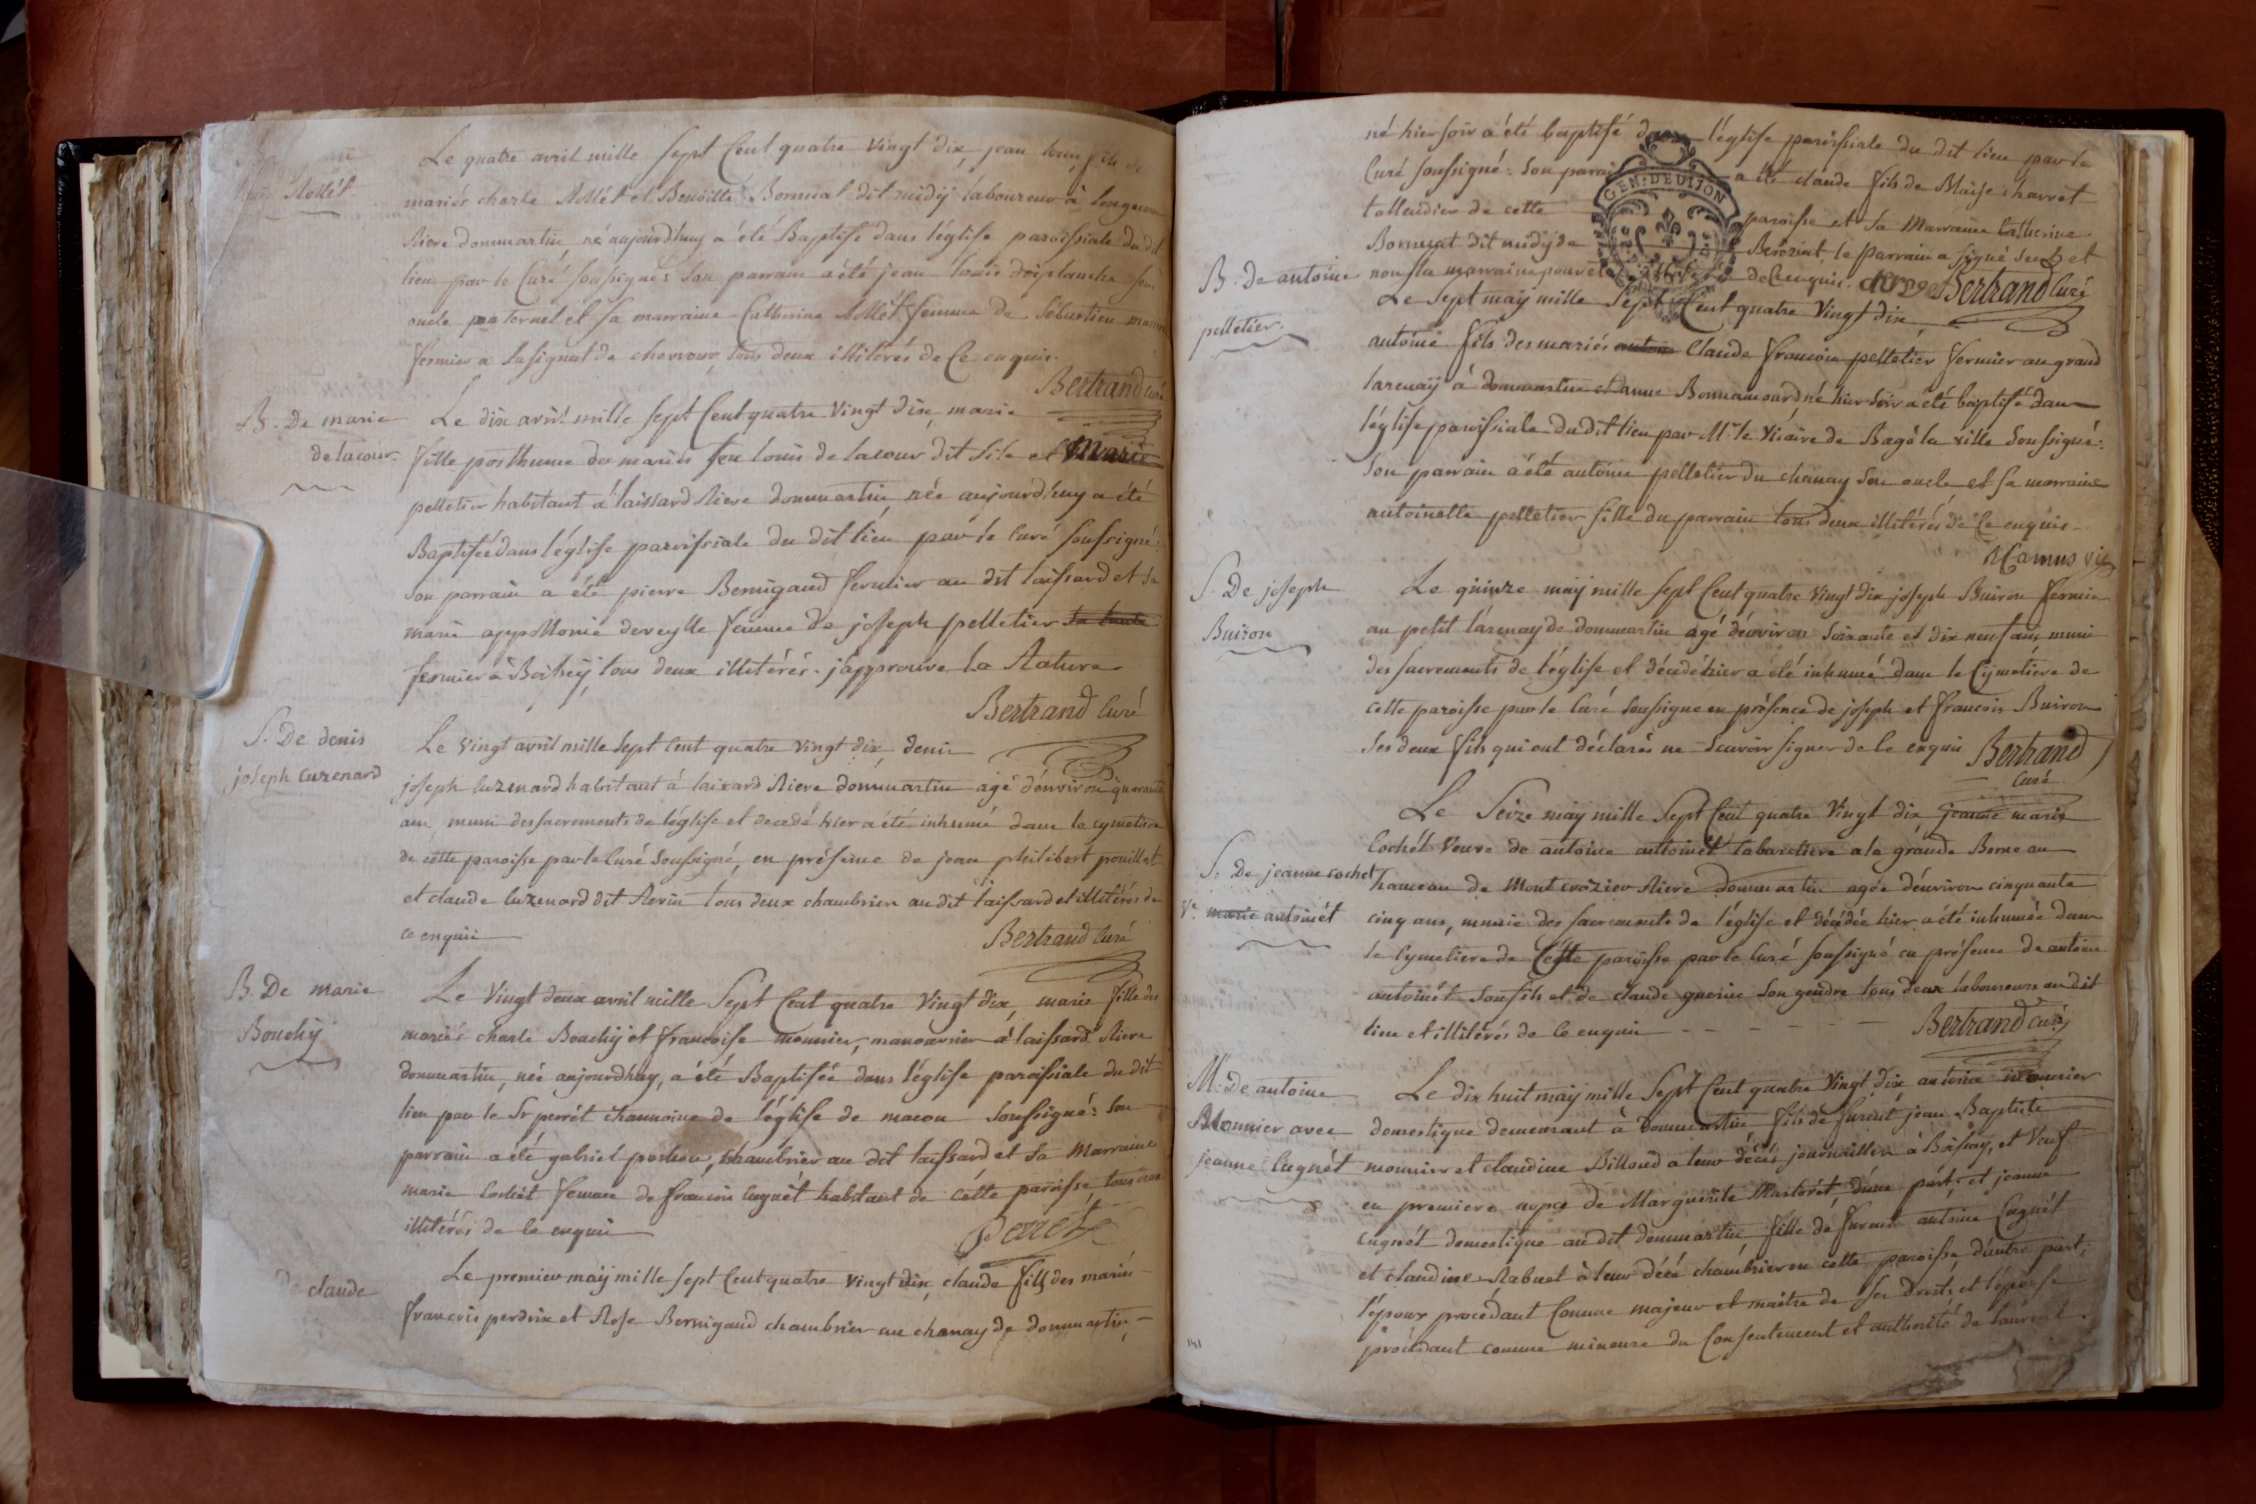 Le quatre avril mille sept Cent quatre vingt dix, jean louis fils de
mariés charle Rollét et Benoitte Bornuat dit midÿ laboureur à
Riere dommartin né aujourdhuy a été Baptisé dans l'église paroissiale du dit
lieu par le Curé soussigné: son parrain a été jean louis son
oncle paternel et sa marraine Catherine Rollét femme de sébastien
fermier a tous deux illiterés de Ce enquis.
Bertrand Curé
Rollét
B. De marie
delacour.
Le dix avril mille sept Cent quatre vingt dix, marie
fille posthume des mariés feu louis de lacour dit et Marie
pelletier habitant à laissard Riere dommartin, née aujourd'huy a été
Baptisée dans l'église paroissiale du dit lieu par le Curé soussigné:
son parrain a été pierre Bernigaud fermier au dit laissard et sa
marè appollonie deveylle femme de joseph pelletier
fermier à Boiheÿ, tous deux illitérés. japprouve la Rature
Bertrand Curé
S. De denis
joseph luzenard
Le vingt avril mille sept Cent quatre vingt dix, denis
joseph luzenard habitant à laissard Riere dommartin agé d'environ quarante
ans muni des sacrements de l'église et decedé hier a été inhumé dans le cymetiere
de cette paroisse par le Curé soussigné, en présence de jean philibert pouillat
et claude luzenard dit tous deux chambrier au dit laissard et illitérés de
ce enquis
Bertrand Curé
B. De marie
Bouchÿ
Le vingt deux avril mille sept Cent quatre vingt dix, marie fille des
mariés charle Bouchÿ et francoise monnier, manoeuvrier à laissard Riere
dommartin, née aujourdhuy, a été Baptisée dans l'église paroissiale du dit
lieu par le Sr perrét chanoine de l'église de macon soussigné: son
parrain a été gabriel chambrier au dit laissard et sa Marraine
marie Cochét femme de francois Cugnét habitant de cétte paroisse tous deux
illitérés de Ce enquis
Perrét
De claude
Le premier maÿ mille sept Cent quatre vingt dix, claude fils des mariés
francois perdrix et Rose Bernigaud chambrier au chanay de dommartin,
né hier soir a été baptisé dans l'église paroissiale du dit lieu par le
Curé soussigné: son parrain a été claude fils de Blaise charrét
tallendier de cette paroisse et sa Marraine Catherine
Bornuat dit midÿ de le parrain a signé seul et
non sa marraine pour de Ce enquis. Bertrand Curé
GEN. DE DIJON
B. De antoine
pelletier.
Le sept maÿ mille sept Cent quatre vingt dix
antoine fils des mariés Claude francois pelletier fermier au grand
larenaÿ à dommartin et anne Bonnamour né hier soir a été baptisé dans
l'église paroissiale du dit lieu par Mr le vicaire de Bagé la ville soussigné:
son parrain a été antoine pelletier du chanay son oncle et sa marraine
antoinette pelletier fille du parrain tous deux illitérés de Ce enquis
Camus vic
S. De joseph
Buiron
Le quinze maÿ mille sept Cent quatre vingt dix joseph Buiron fermier
au petit larenay de dommartin agé d'environ soixante et dix neuf ans muni
des sacrements de l'église et décédé hier a été inhumé dans le Cymetiere de
cette paroisse par le Curé soussigné en présence de joseph et francois Buiron
ses deux fils qui ont déclarés ne scavoir signer de Ce enquis Bertrand
Curé
S. De jeanne cochet
Ve marie antoinét
Le Seize maÿ mille sept Cent quatre vingt dix jeanne marie
Cochét veuve de antoine antoinét a la grande Berne au
hameau de Montcrozier Riere dommartin agée d'environ cinquante
cinq ans, munie des sacrements de l'église et décédée hier a été inhumée dans
le Cymetiere de Cétte paroisse par le Curé soussigné en présence de antoine
antoinét son fils et de claude guerin son gendre tous deux laboureurs au dit
lieu et illitérés de Ce enquis
Bertrand Curé
M: de antoine
Monnier avec
jeanne Cugnét
Le dix huit maÿ mille sept Cent quatre vingt dix antoine monnier
domestique demeurant à Dommartin fils de furent jean Baptiste
monnier et claudine Billoud a leur décès journaillier à Boihay, et veuf
en premiere nopce de Marguerite d'une part; et jeanne
Cugnét domestique au dit dommartin fille de furent antoine Cugnét
et claudine Rabuet à leur décé chambrier en cette paroisse d'autre part;
l'époux procédant Comme majeur et maitre de ses Droits et l'épouse
procédant comme mineure du Consentement et authorité de laurent
141